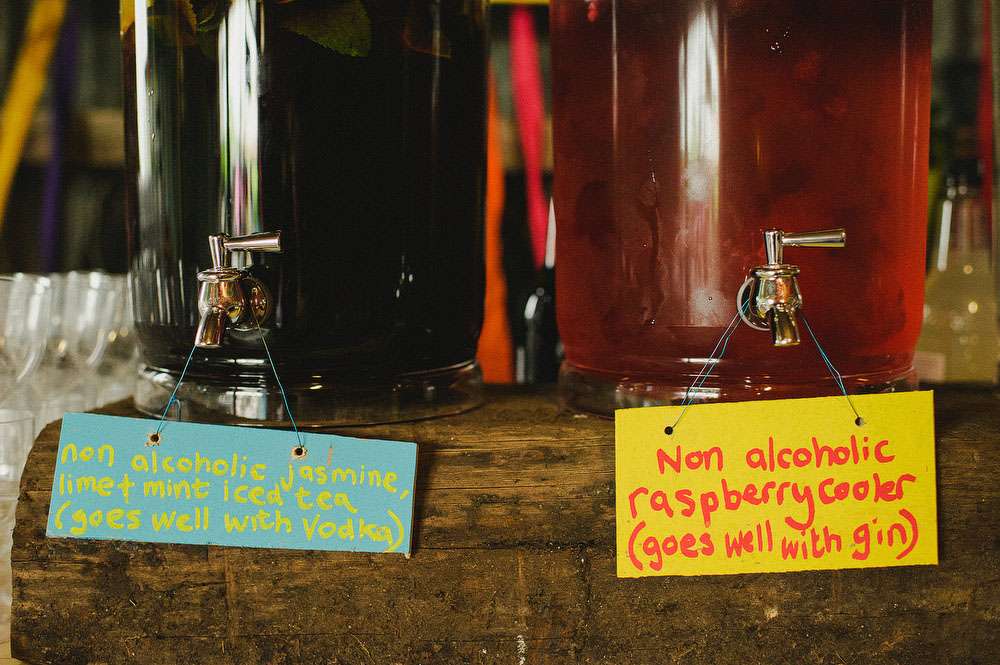 non alcoholic jasmine,
lime + mint iced tea
(goes well with Vodka)
Non alcoholic
raspberry cooler
(goes well with gin)